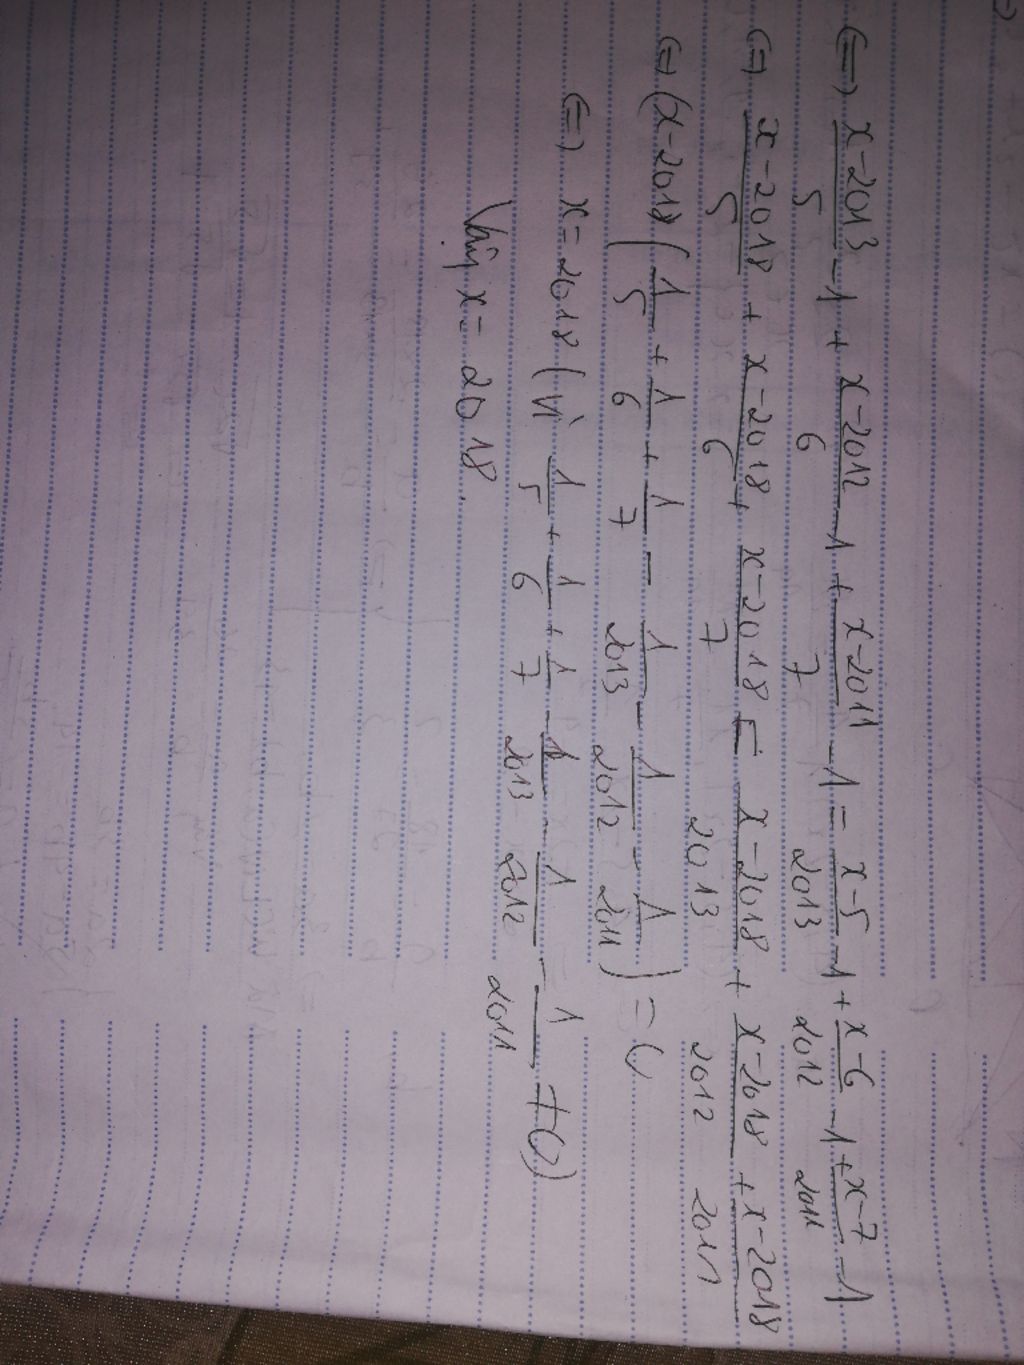 ⇔ x-2013/5 - 1 + x-2012/6 - 1 + x-2011/7 - 1 = x-5/2013 - 1 + x-6/2012 - 1 + x-7/2011 - 1
⇔ x-2018/5 + x-2018/6 + x-2018/7 = x-2018/2013 + x-2018/2012 + x-2018/2011
⇔ (x-2018) (1/5 + 1/6 + 1/7 - 1/2013 - 1/2012 - 1/2011) = 0
⇔ x = 2018 (vì 1/5 + 1/6 + 1/7 - 1/2013 - 1/2012 - 1/2011 ≠ 0)
Vậy x = 2018.